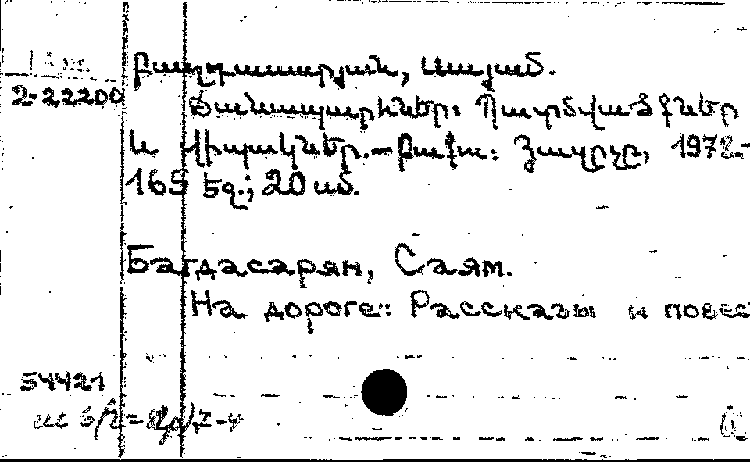 2-22200
Բաղդասարյան, Սայամ.
Ճանապարհներ: Պատմվածքներ
և վիպակներ.-Բաքու: Յազըչը, 1978.-
165 էջ.; 20 սմ.
Багдасарян, Саям.
На дороге: Рассказы и повес
54421